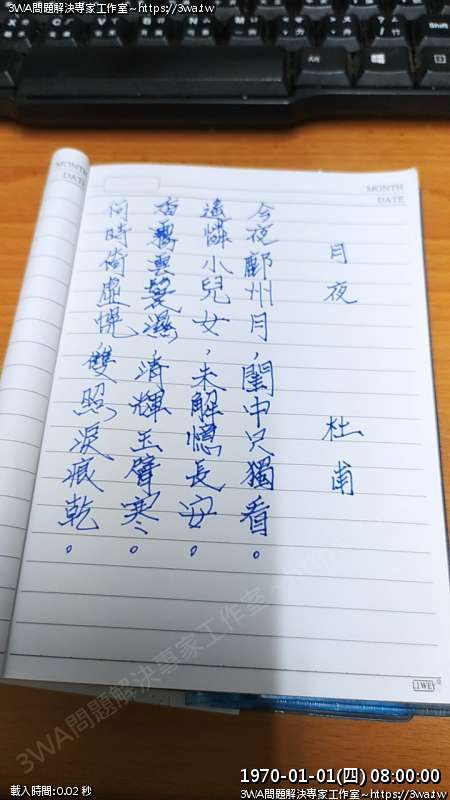 3WA問題解決專家工作室~https://3wa.tw
3WA問題解決專家工作室~https://3wa.tw
MONTH
DATE
MONTH
DATE
月夜 杜甫
今夜鄜州月，閨中只獨看。
遙憐小兒女，未解憶長安。
香霧雲鬟濕，清輝玉臂寒。
何時倚虛幌，雙照淚痕乾。
3WA問題解決專家工作室~https://3wa.tw
1970-01-01(四) 08:00:00
載入時間:0.02 秒
3WA問題解決專家工作室~https://3wa.tw